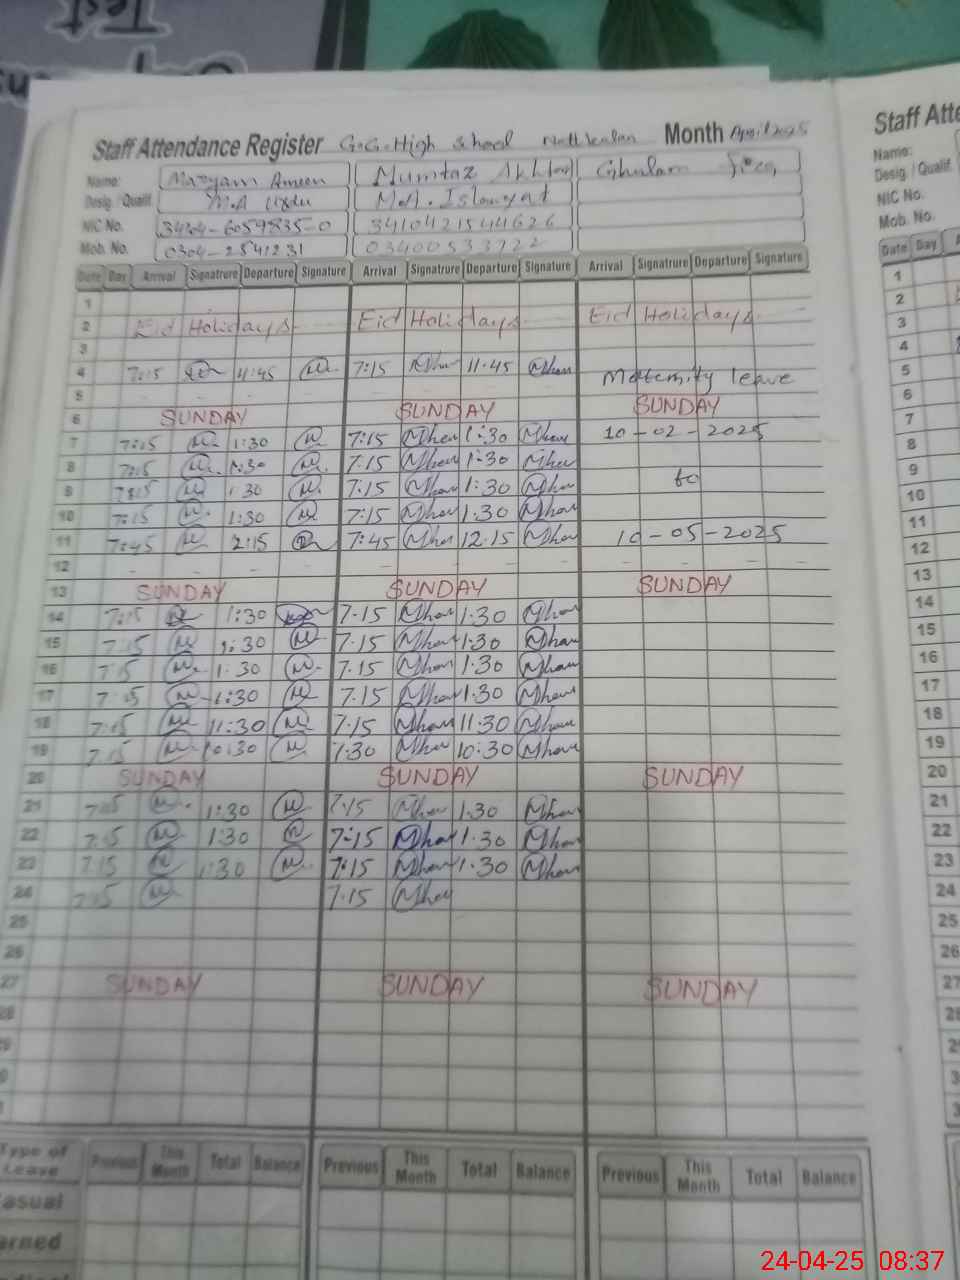 Test
Staff Attendance Register G.G. High School Natt kalan Month April 2025
Name: Maryam Ameen Mumtaz Akhtar Ghulam
Desig./Qualif. M.A Urdu M.A. Islamyat
NIC No. 34104-6059835-0 3410421544626
Mob. No. 0304-2541231 03400533722
Date Day Arrival Signatrure Departure Signature Arrival Signatrure Departure Signature Arrival Signatrure Departure Signature
1
2 Eid Holidays Eid Holidays Eid Holidays
3
4 7:15 11:45 7:15 11.45 Maternity leave
5
6 SUNDAY SUNDAY SUNDAY
7 7:15 1:30 7:15 1:30 10-02-2025
8 7:15 1:30 7.15 1:30
9 7:15 1:30 7:15 1:30 to
10 7:15 1:30 7:15 1.30
11 7:45 2:15 7:45 12.15 10-05-2025
12
13 SUNDAY SUNDAY SUNDAY
14 7:15 1:30 7.15 1:30
15 7:15 1:30 7.15 1.30
16 7:15 1:30 7.15 1.30
17 7:15 1:30 7.15 1:30
18 7:15 11:30 7:15 11:30
19 7.15 10:30 7:30 10:30
20 SUNDAY SUNDAY SUNDAY
21 7:15 1:30 7:15 1.30
22 7:15 1:30 7:15 1.30
23 7:15 1:30 7:15 1:30
24 7:15 7.15
25
26
27 SUNDAY SUNDAY SUNDAY
28
Type of Leave Previous This Month Total Balance Previous This Month Total Balance Previous This Month Total Balance
Casual
Earned
Staff Atte
Name:
Desig./Qualif.
NIC No.
Mob. No.
Date Day
1
2
3
4
5
6
7
8
9
10
11
12
13
14
15
16
17
18
19
20
21
22
23
24
25
26
27
28
24-04-25 08:37